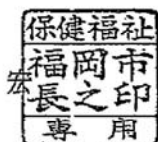 保健福祉
福岡市
宏
長之印
専用